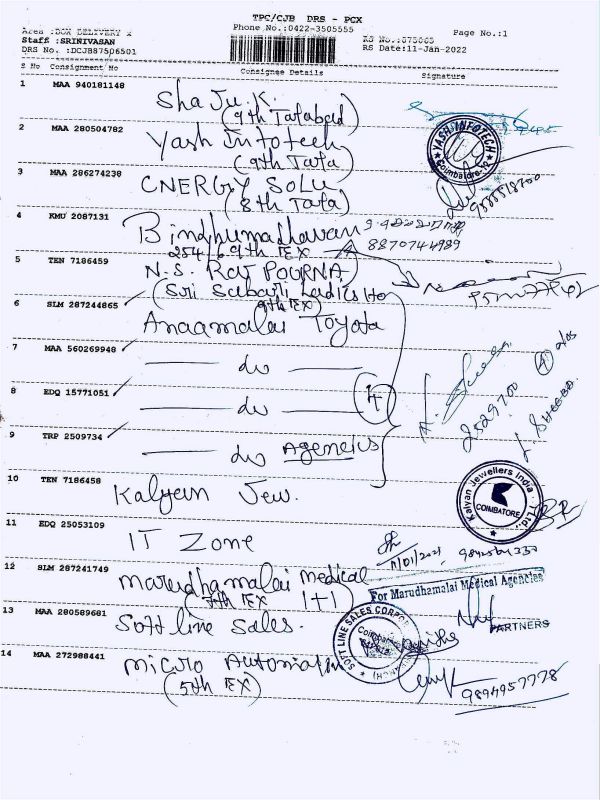 TPC/CJB DRS - PCX
Area :DOX DELIVERY 2
Phone No.:0422-3505555
Staff :SRINIVASAN
RS No :875065
Page No.:1
DRS No. :DCJB87506501
RS Date:11-Jan-2022
S No Consignment No
Consignee Details
Signature
1 MAA 940181148
Shaju.K.
(9th Tatabad)
2 MAA 280504782
Yash Infotech
(9th Tata)
YASH INFOTECH
Coimbatore-12
3 MAA 286274238
CNERGY SOLU
(8th Tata)
4 KMU 2087131
Bindhumadhavan
254/69th EX
8870744989
5 TEN 7186459
N.S. Raj POURNA
(Sri Sabari Ladies Ho
9th EX)
6 SLM 287244865
Anaamalai Toyota
7 MAA 560269948
do
8 EDQ 15771051
do
4
9 TRP 2509734
do Agencies
2529700
10 TEN 7186458
Kalyan Jew.
Kalyan Jewellers India Ltd
COIMBATORE
11 EDQ 25053109
IT Zone
12 SLM 287241749
Marudhamalai Medical
(7th EX 1+1)
For Marudhamalai Medical Agencies
PARTNERS
13 MAA 280589681
Soft line Sales.
SOFT LINE SALES CORPOR
14 MAA 272988441
Micro Automation
(5th EX)
9894957778